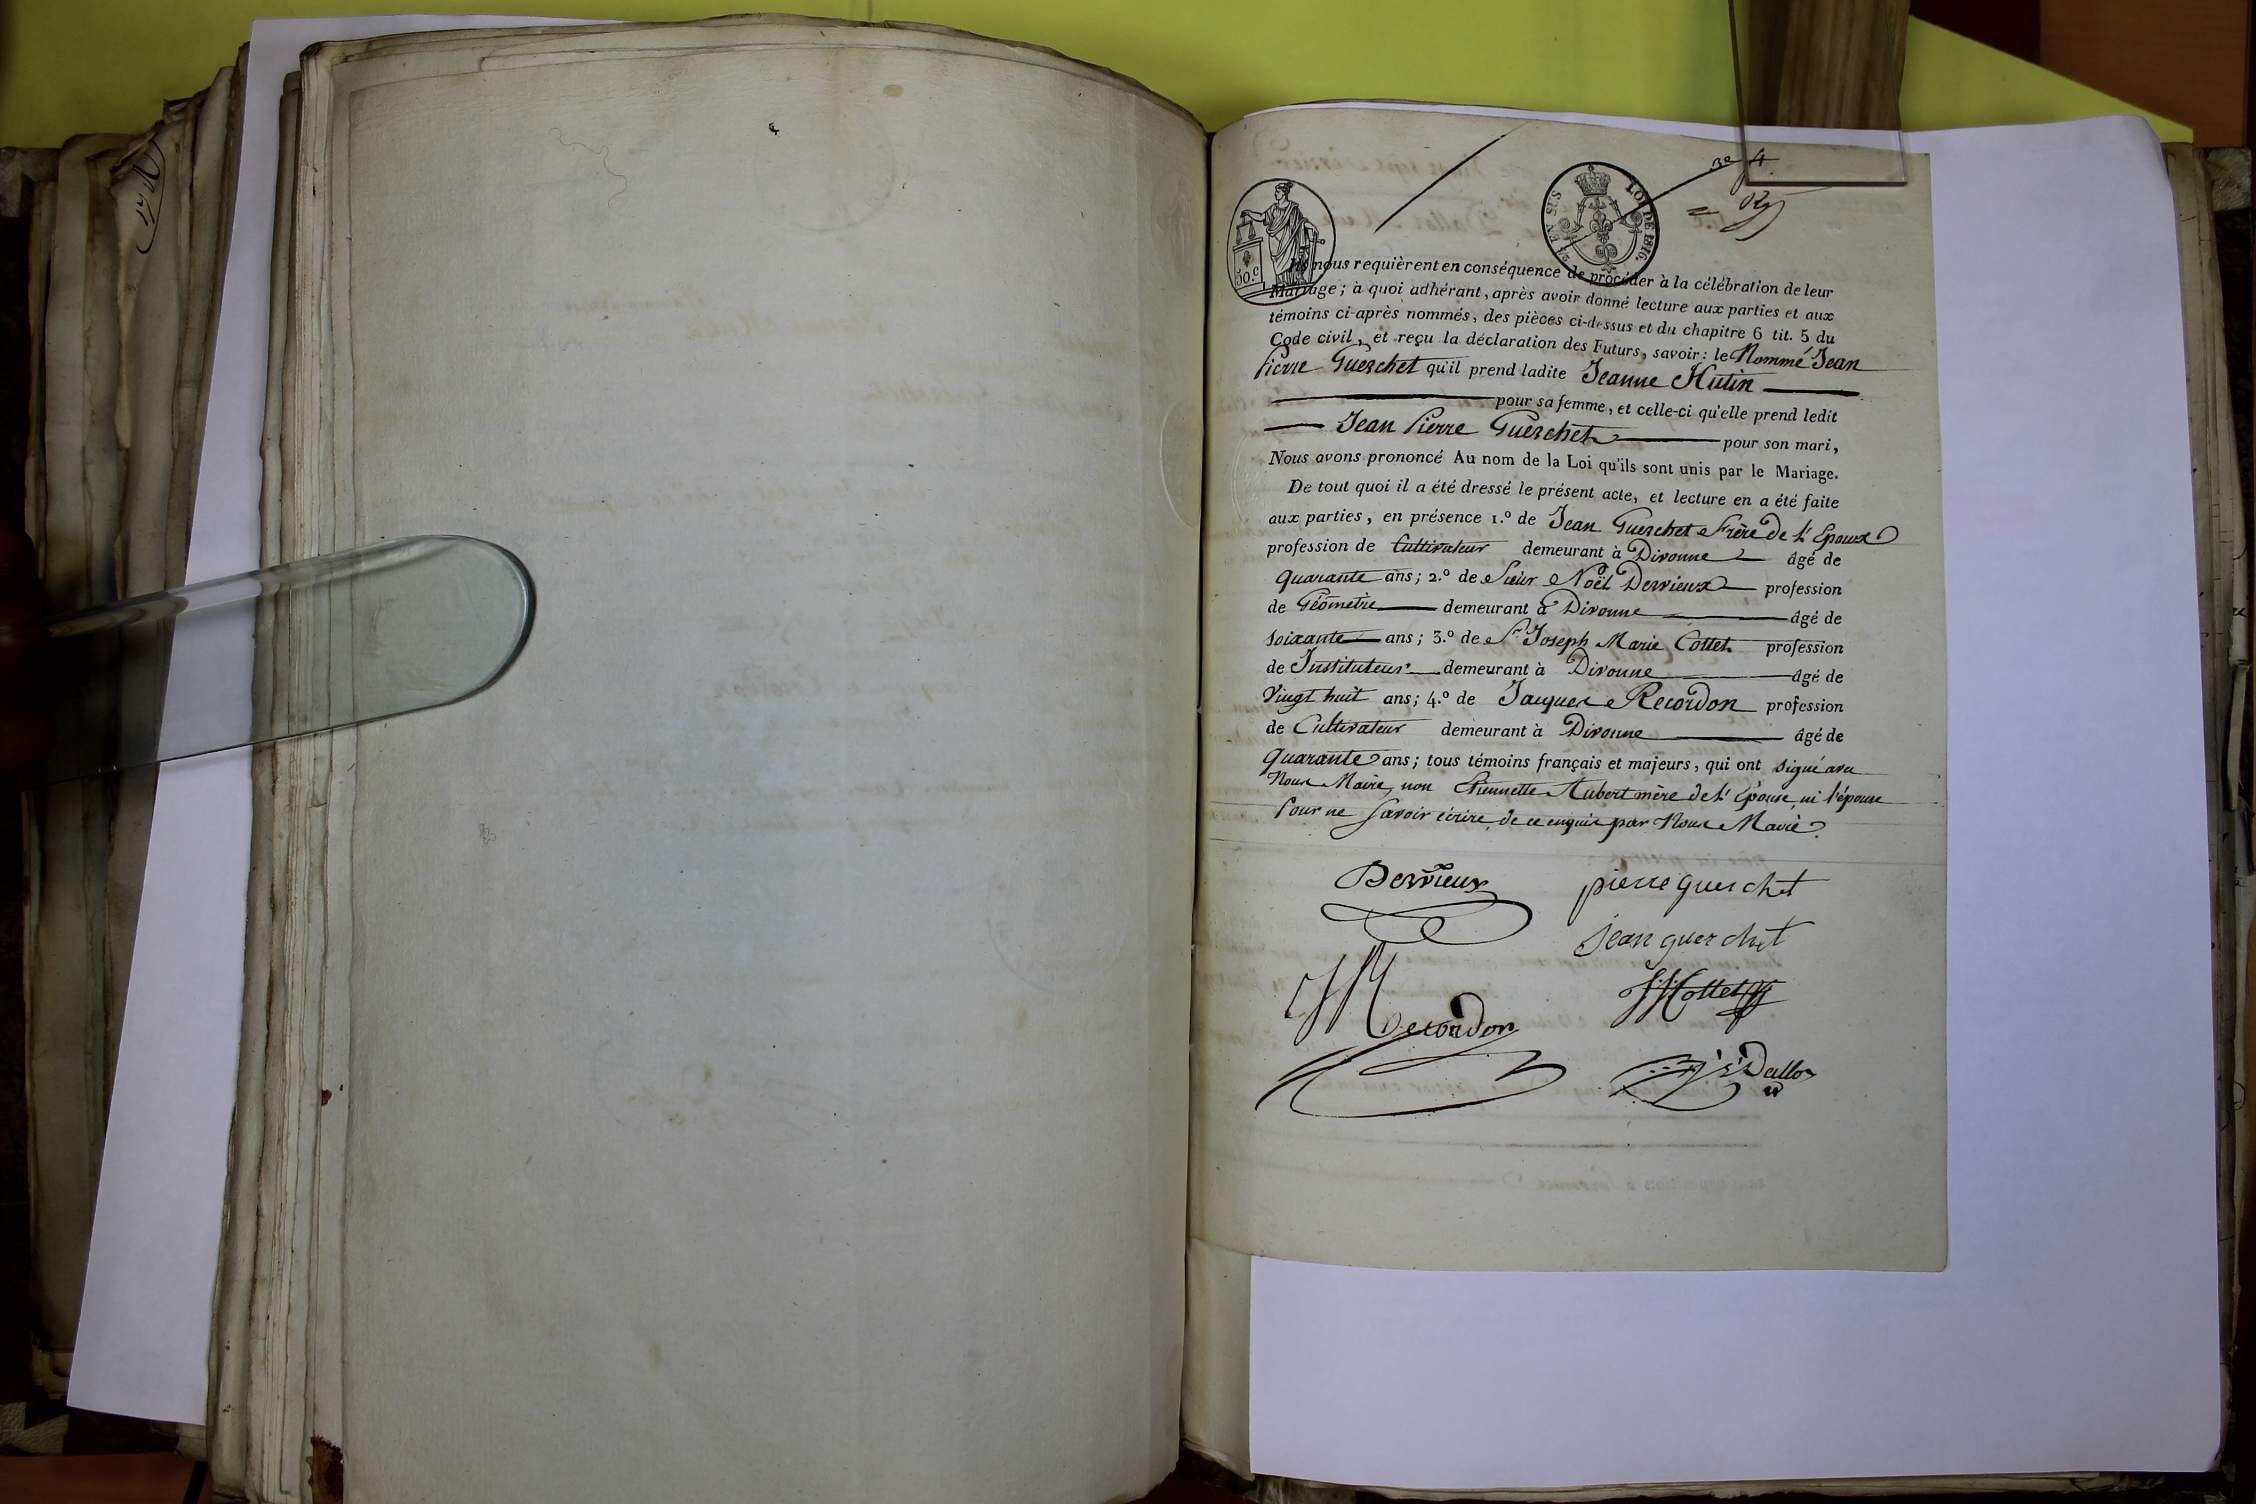 3e f.
50.c
ET 1/5 EN SUS
LOI DE 1816.
Ils nous requièrent en conséquence de procéder à la célébration de leur
Mariage; à quoi adhérant, après avoir donné lecture aux parties et aux
témoins ci-après nommés, des pièces ci-dessus et du chapitre 6 tit. 5 du
Code civil, et reçu la déclaration des Futurs, savoir: le Nommé Jean
Pierre Guerchet qu'il prend ladite Jeanne Hutin
pour sa femme, et celle-ci qu'elle prend ledit
Jean Pierre Guerchet pour son mari,
Nous avons prononcé Au nom de la Loi qu'ils sont unis par le Mariage.
De tout quoi il a été dressé le présent acte, et lecture en a été faite
aux parties, en présence 1.º de Jean Guerchet Frère de l'Epoux
profession de Cultivateur demeurant à Divonne âgé de
quarante ans; 2.º de Sieur Noël Dervieux profession
de Géomètre demeurant à Divonne âgé de
soixante ans; 3.º de Sr Joseph Marie Cottet profession
de Instituteur demeurant à Divonne âgé de
Vingt huit ans; 4.º de Jacques Recordon profession
de Cultivateur demeurant à Divonne âgé de
Quarante ans; tous témoins français et majeurs, qui ont signé avec
Nous Maire, non Etiennette Aubert mère de l'Epouse, ni l'épouse
Pour ne savoir écrire, de ce enquis par Nous Maire.
Dervieux
pierre guerchet
jean guerchet
Cottet
Recordon
Dallos